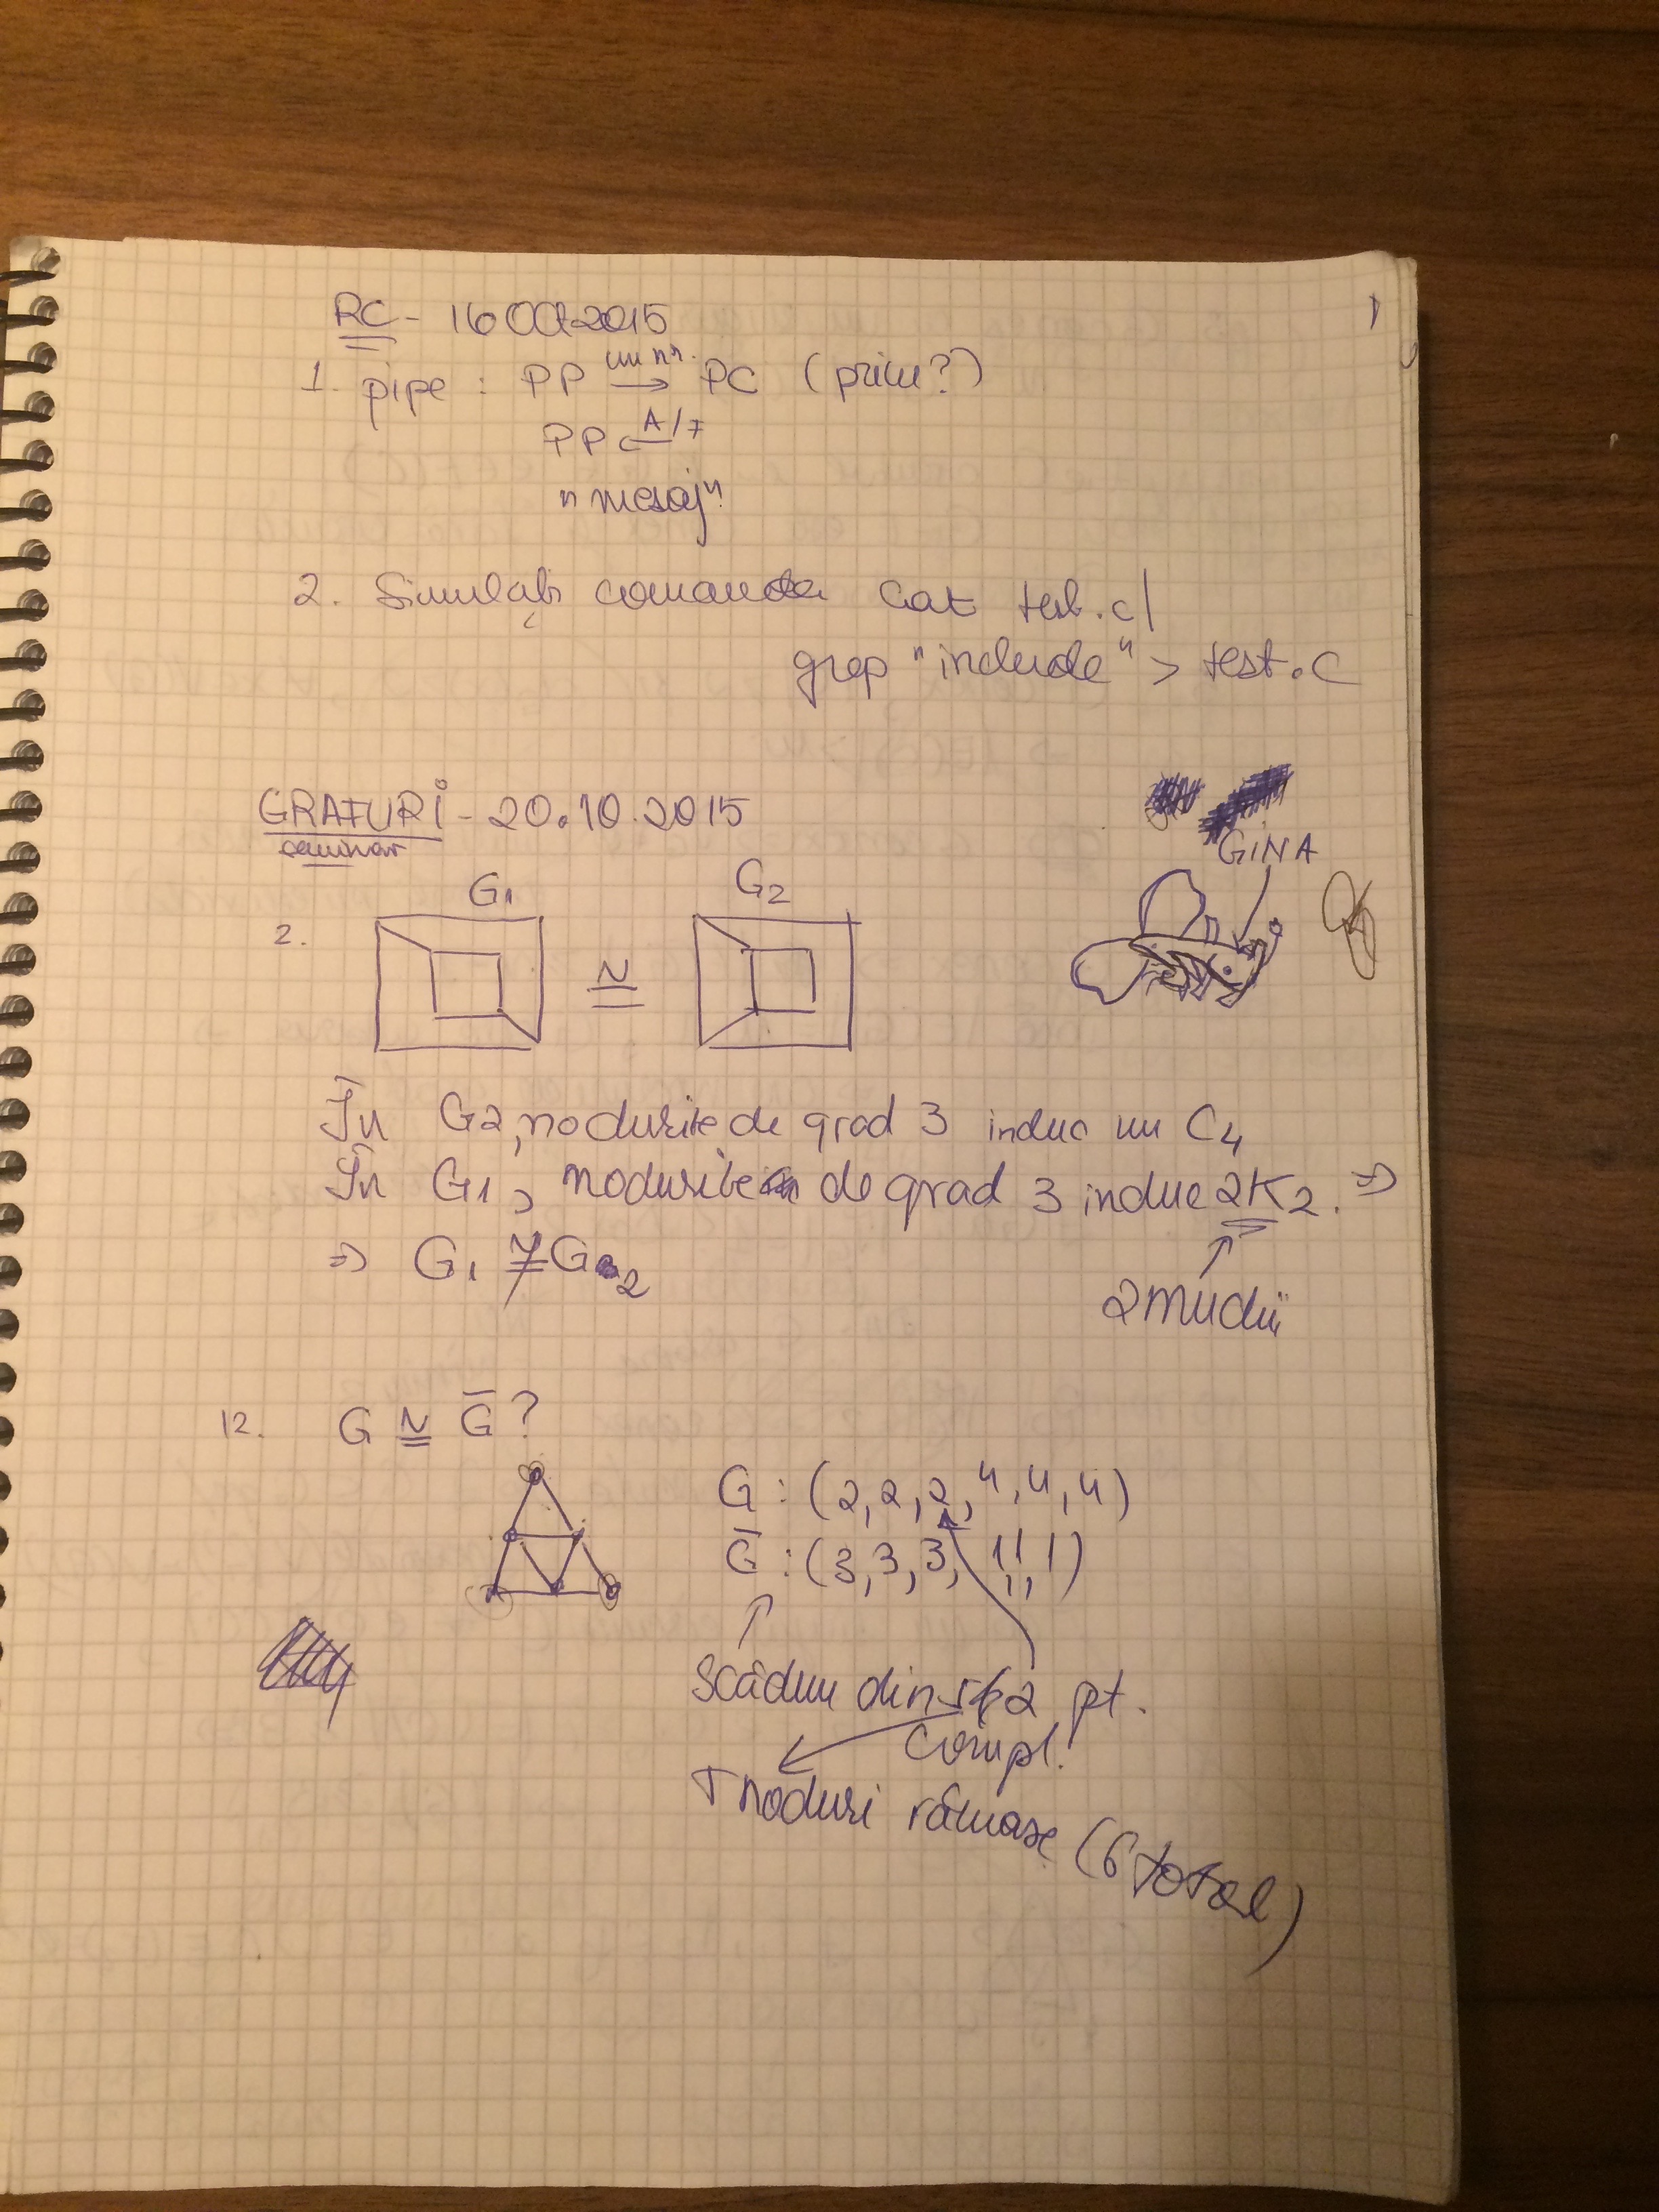 RC - 16 Oct 2015
1. pipe : PP un nr. → PC (prim?)
PP ← A/F
"mesaj"
2. Simulați comanda cat test.c |
grep "include" > test.c
GRAFURI - 20.10.2015
seminar
GINA
G1 G2
2. ≅
În G2, nodurile de grad 3 induc un C4
În G1, nodurile de grad 3 induc 2K2. ⇒
⇒ G1 ≇ G2
2 muchii
12. G ≅ G̅ ?
G : (2, 2, 2, 4, 4, 4)
G̅ : (3, 3, 3, 1, 1, 1)
Scădem din 5 2 pt.
compl.
noduri rămase (6 total)